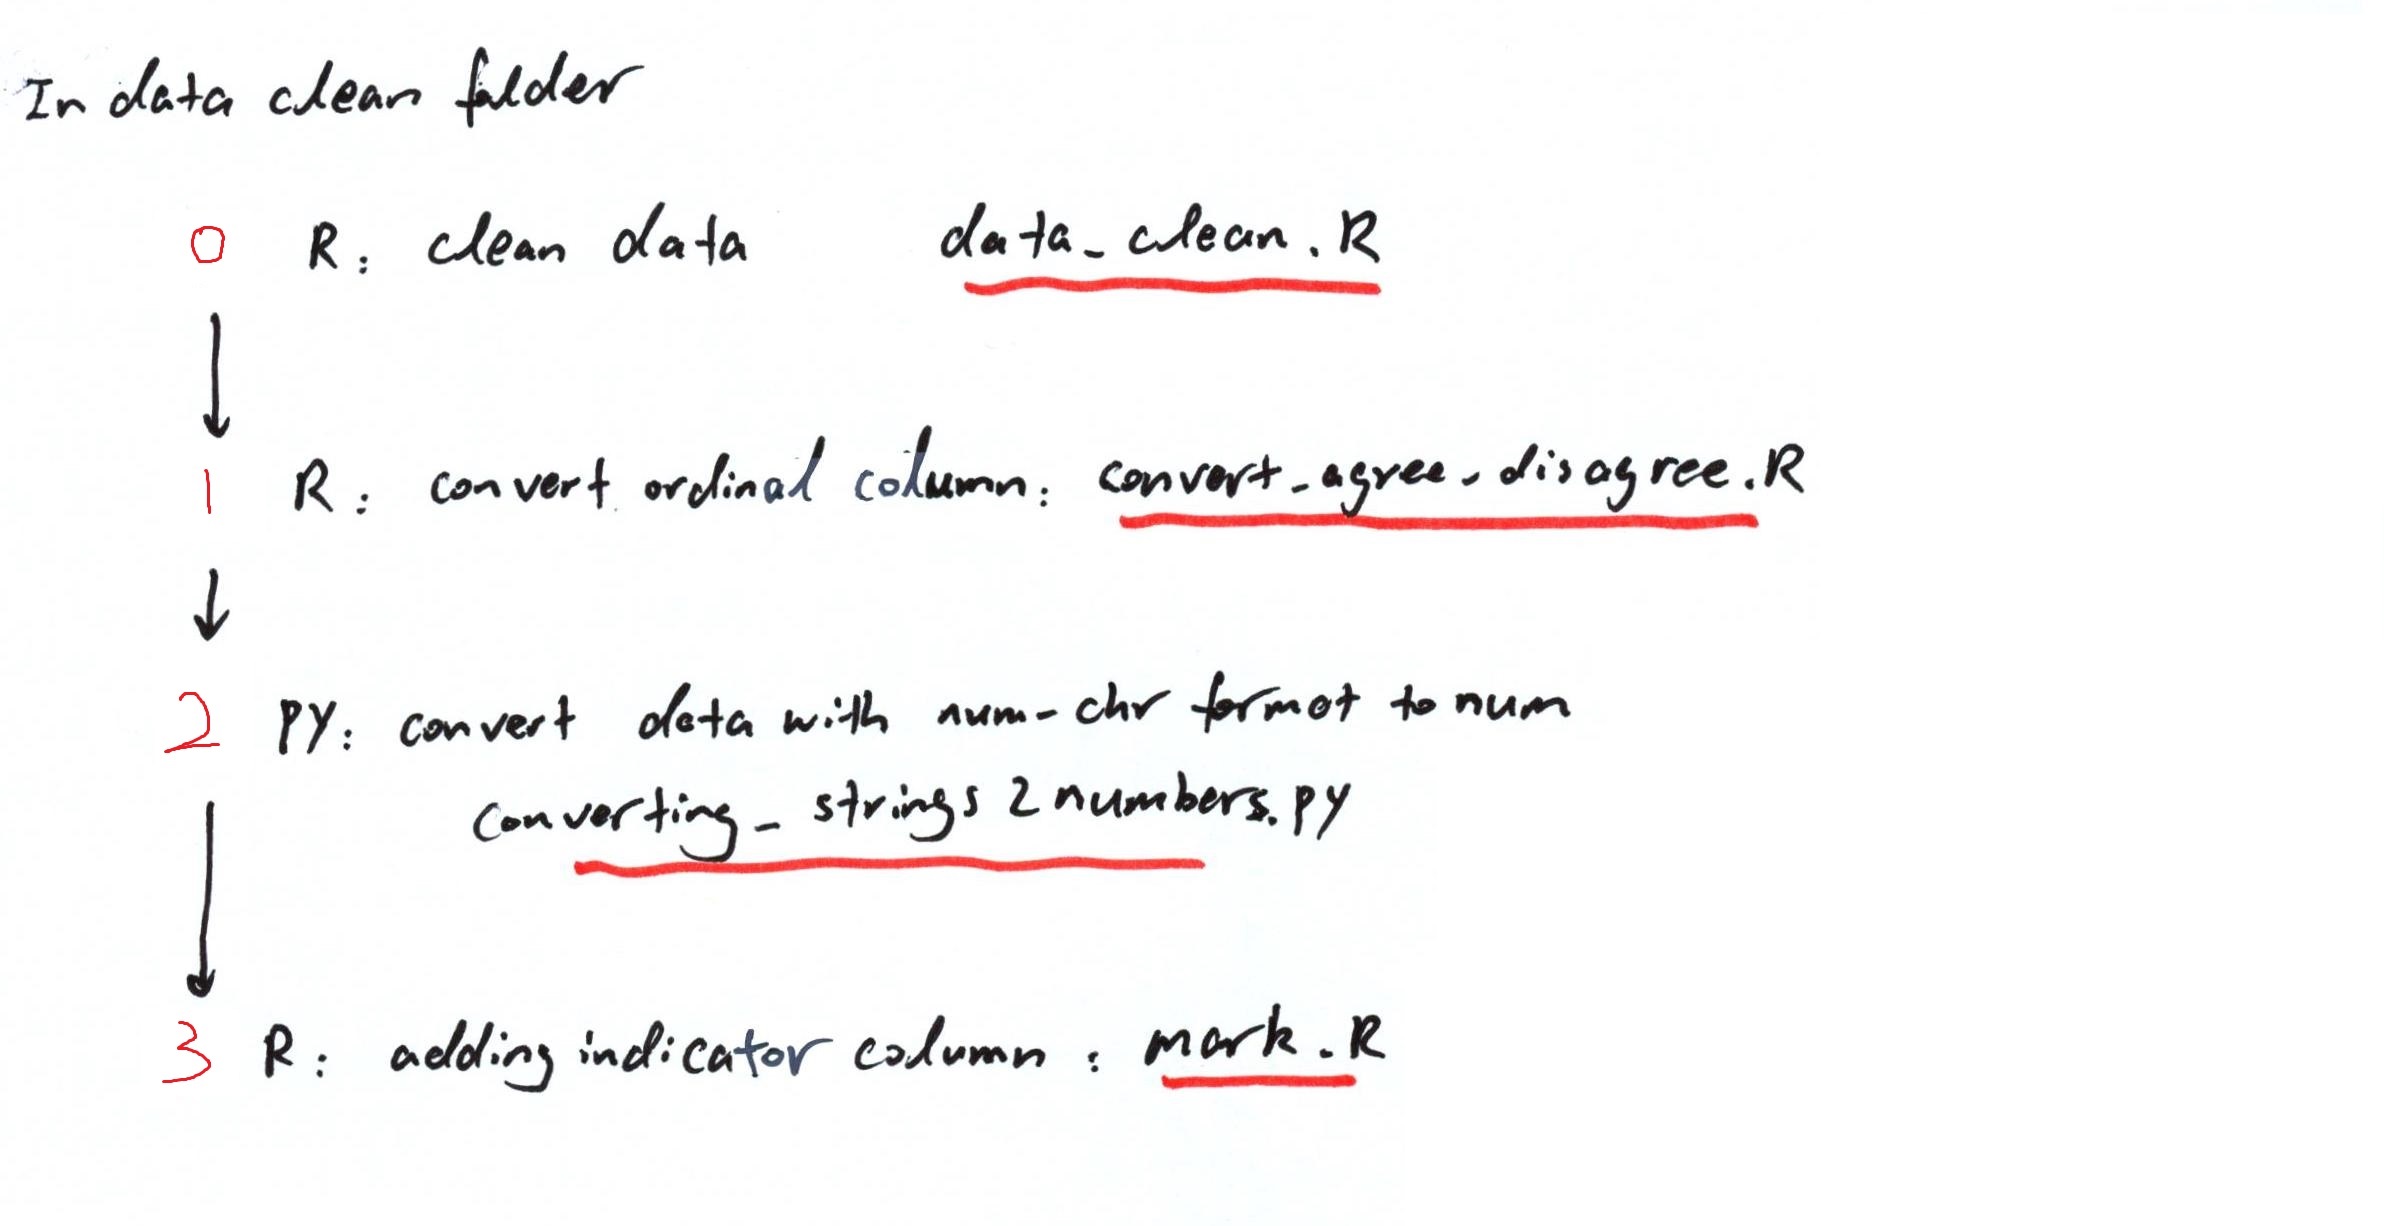 In data clean folder
0 R: clean data data_clean.R
1 R: convert ordinal column: convert_agree_disagree.R
2 PY: convert data with num-chr format to num
converting_strings2numbers.py
3 R: adding indicator column: mark.R